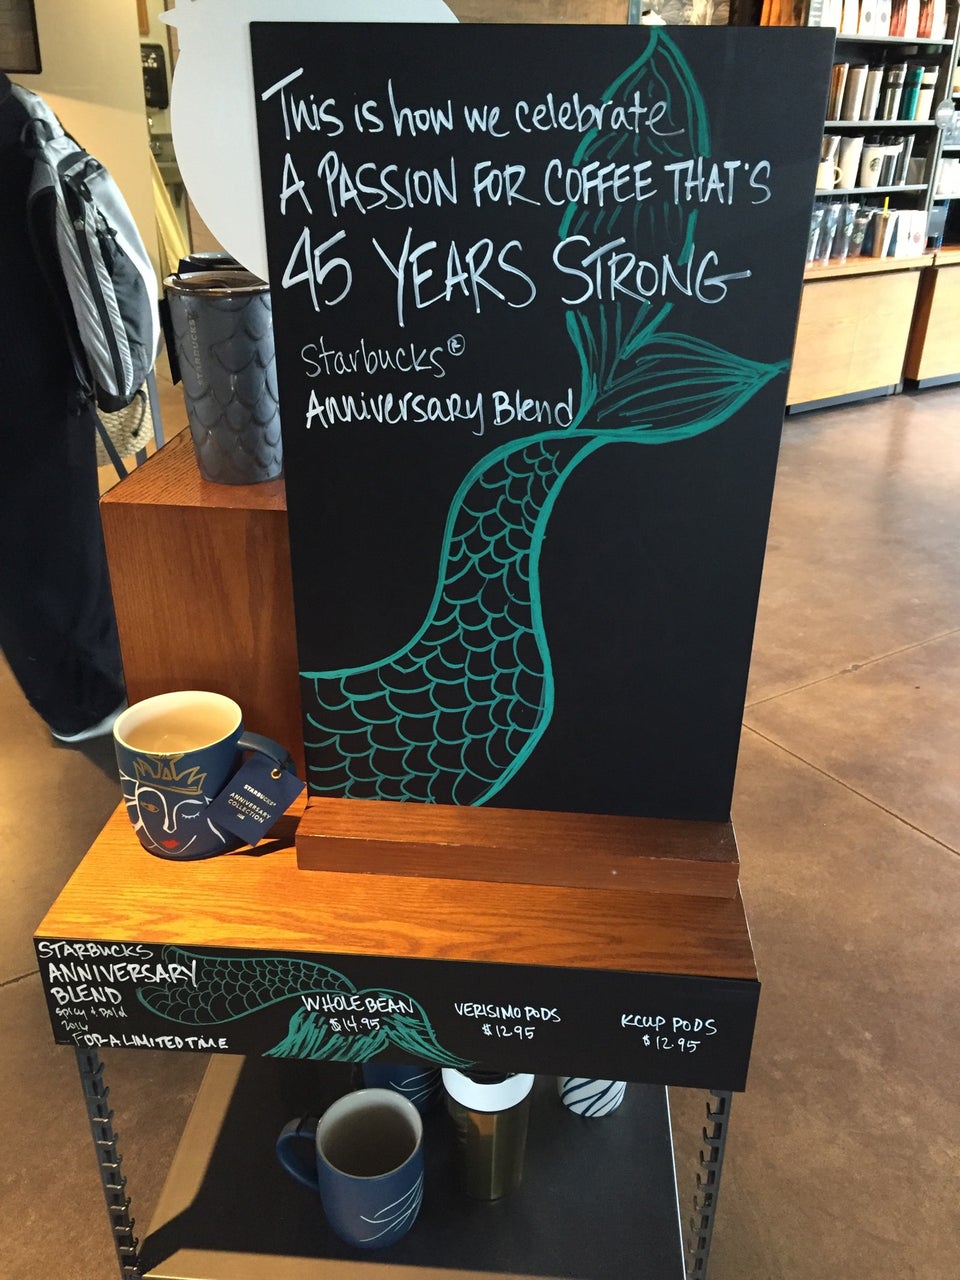 This is how we celebrate
A PASSION FOR COFFEE THAT'S
45 YEARS STRONG
Starbucks®
Anniversary Blend
STARBUCKS
STARBUCKS®
ANNIVERSARY
COLLECTION
STARBUCKS
ANNIVERSARY
BLEND
Spicy & Bold
2016
FOR A LIMITED TIME
WHOLE BEAN
$14.95
VERISIMO PODS
$12.95
KCUP PODS
$12.95